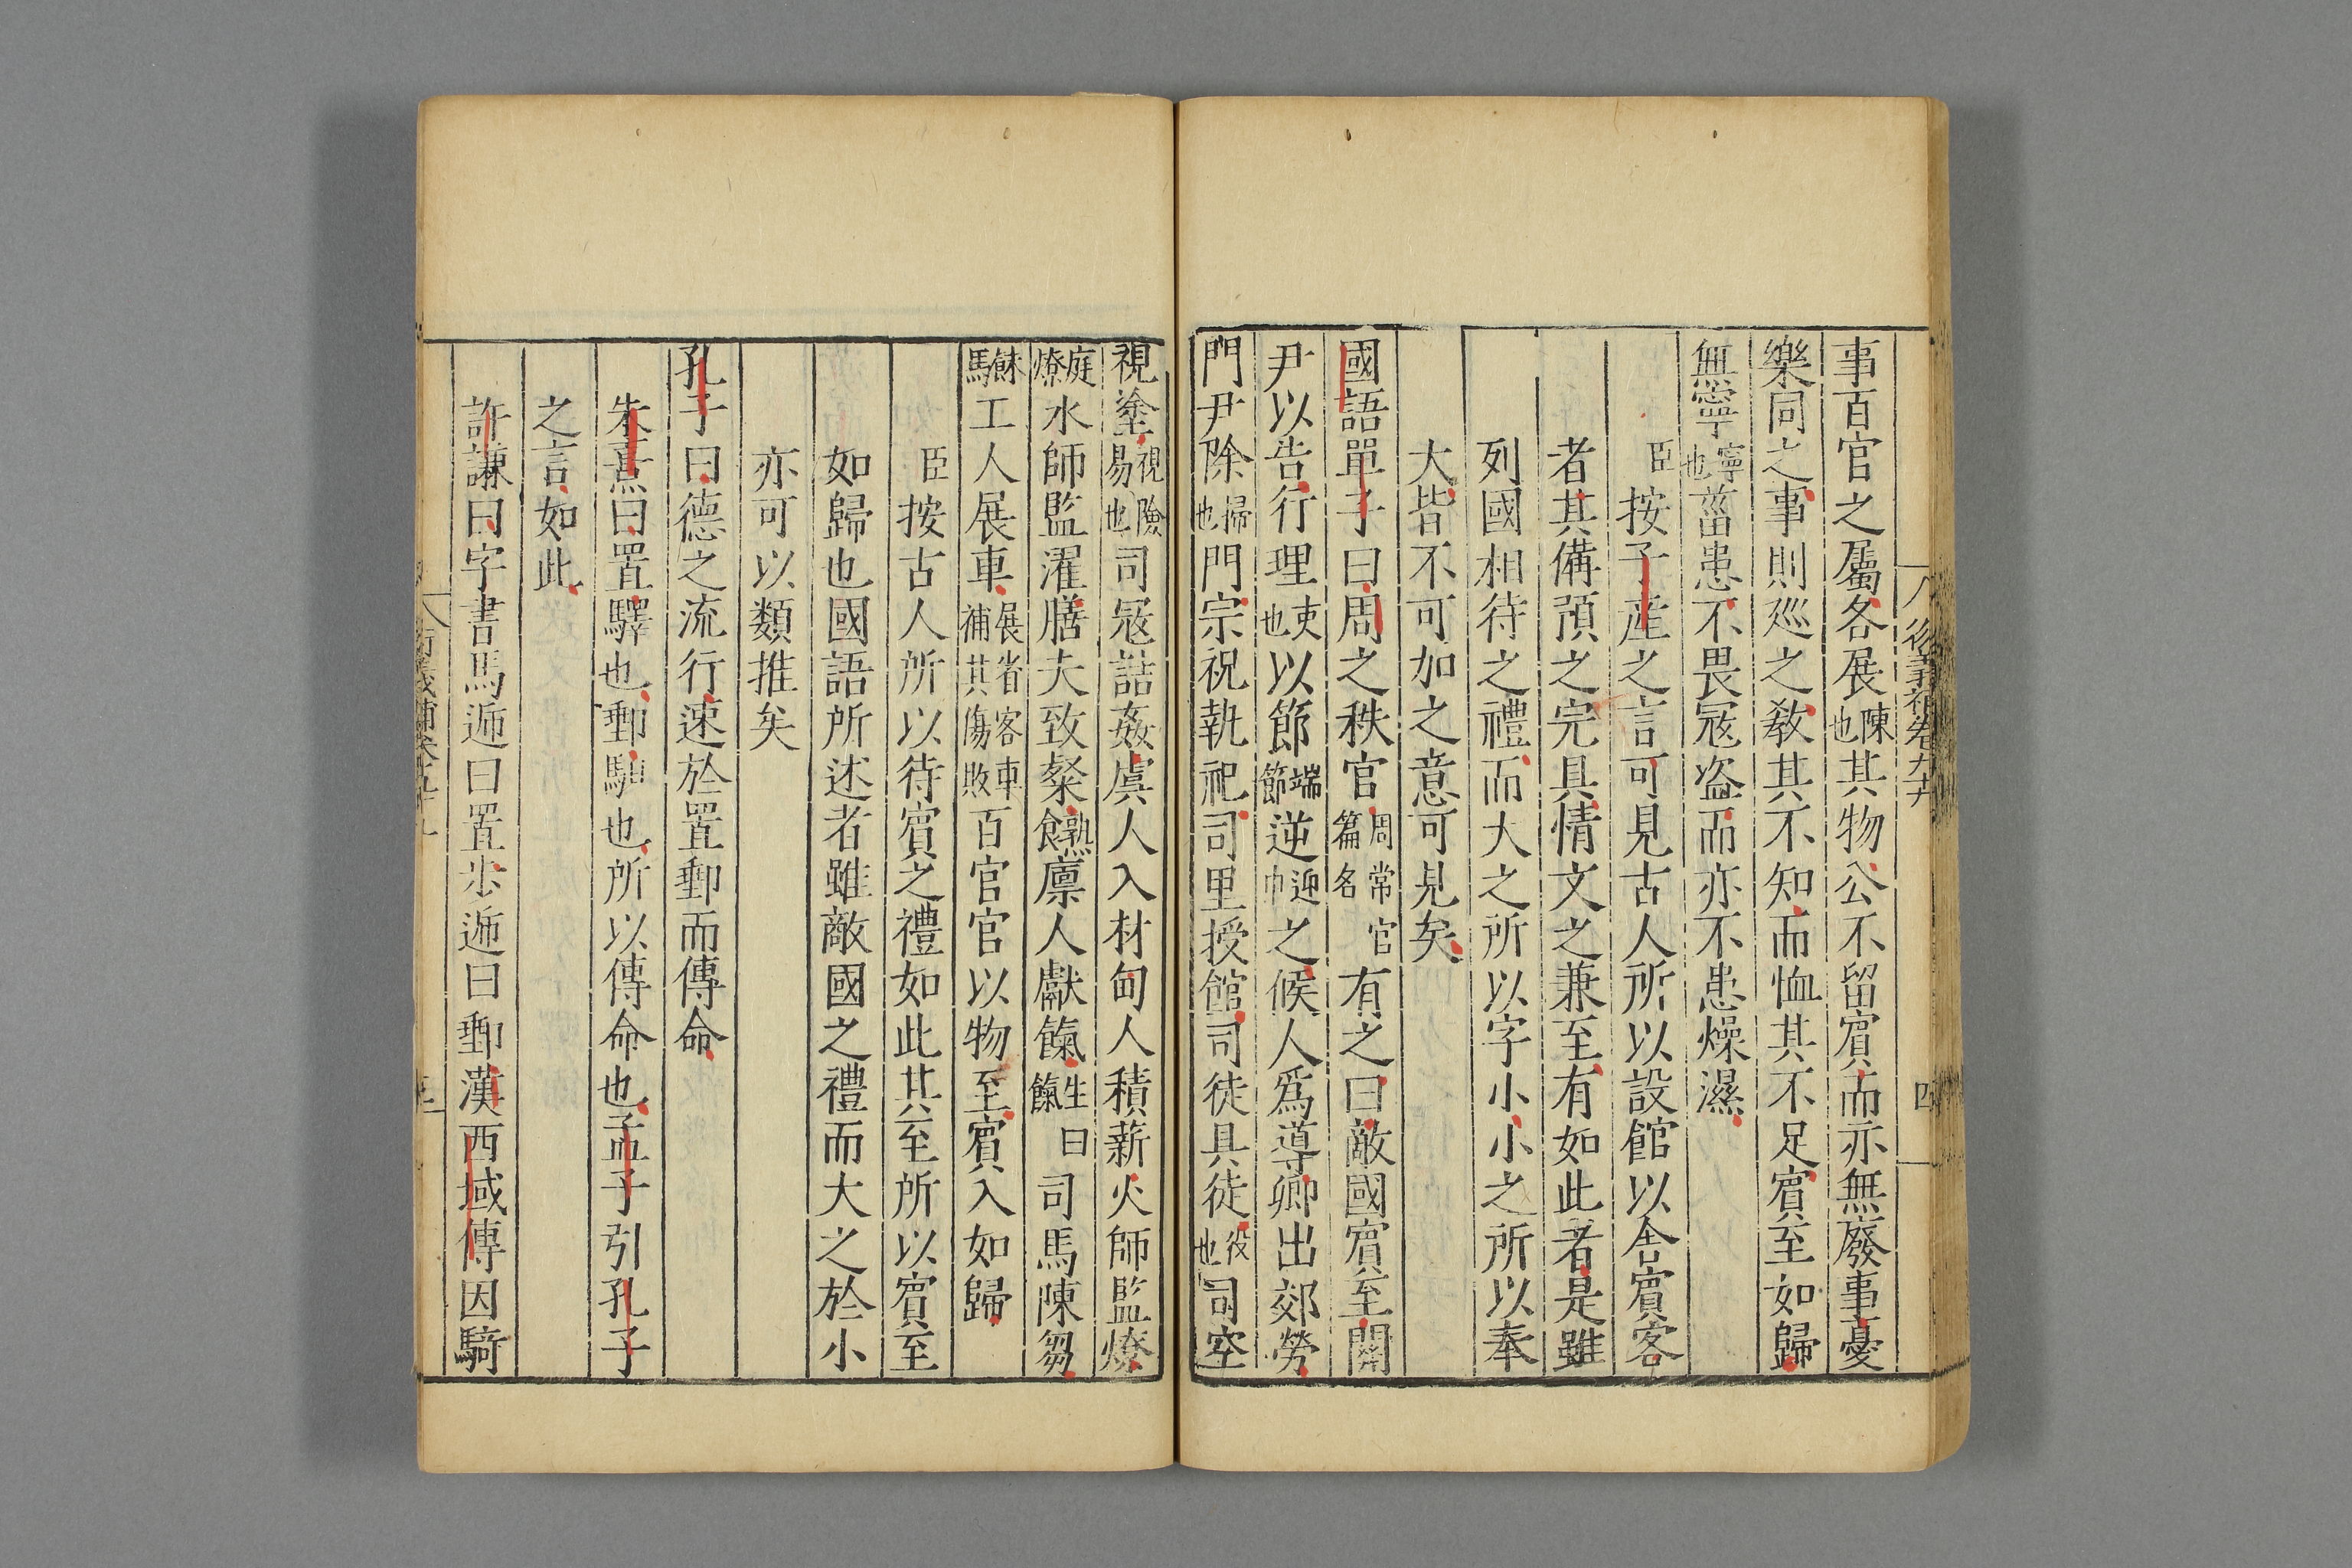 事百官之屬各展陳也其物公不留賔而亦無廢事憂
樂同之事則廵之敎其不知而恤其不足賔至如歸
無寧寧也菑患不畏冦盗而亦不患燥濕
臣按子產之言可見古人所以設館以舍賔客
者其備預之完具情文之兼至有如此者是雖
列國相待之禮而大之所以字小小之所以奉
大皆不可加之意可見矣
國語單子曰周之秩官周常官篇名有之曰敵國賔至關
尹以告行理吏也以節端節逆迎之候人爲導卿出郊勞
門尹除掃也門宗祝執祀司里授館司徒具徒役也司空
視塗視險易也司冦詰姦虞人入材甸人積薪火師監燎
庭燎水師監濯膳夫致粲熟食廪人獻餼生餼曰司馬陳芻
餗馬工人展車展省客車補其傷敗百官官以物至賔入如歸
臣按古人所以待賔之禮如此其至所以賔至
如歸也國語所述者雖敵國之禮而大之於小
亦可以類推矣
孔子曰德之流行速於置郵而傳命
朱熹曰置驛也郵馹也所以傳命也孟子引孔子
之言如此
許謙曰字書馬逓曰置步逓曰郵漢西域傳因騎